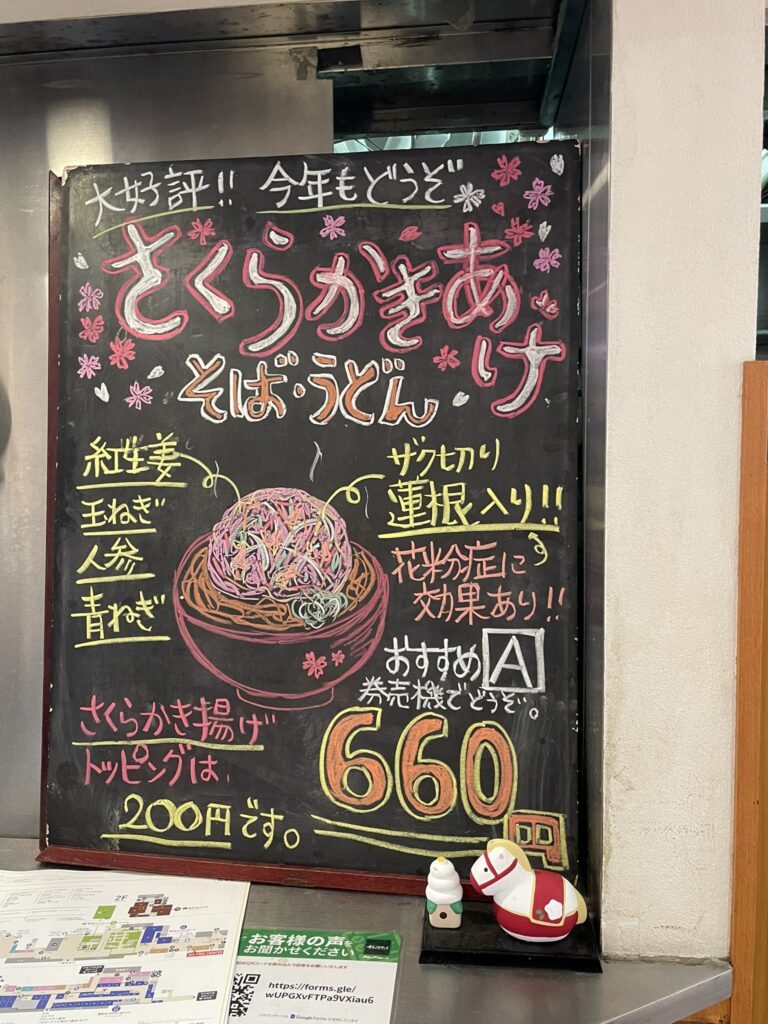 大好評!! 今年もどうぞ
さくらかきあげ
そば・うどん
紅生姜
玉ねぎ
人参
青ねぎ
ザク切り
蓮根入り!!
花粉症に
効果あり!!
おすすめ A
券売機でどうぞ。
さくらかき揚げ
トッピングは、
200円です。
660円
2F
お客様の声を
お聞かせください
https://forms.gle/
wUPGXvFTPa9VXiau6